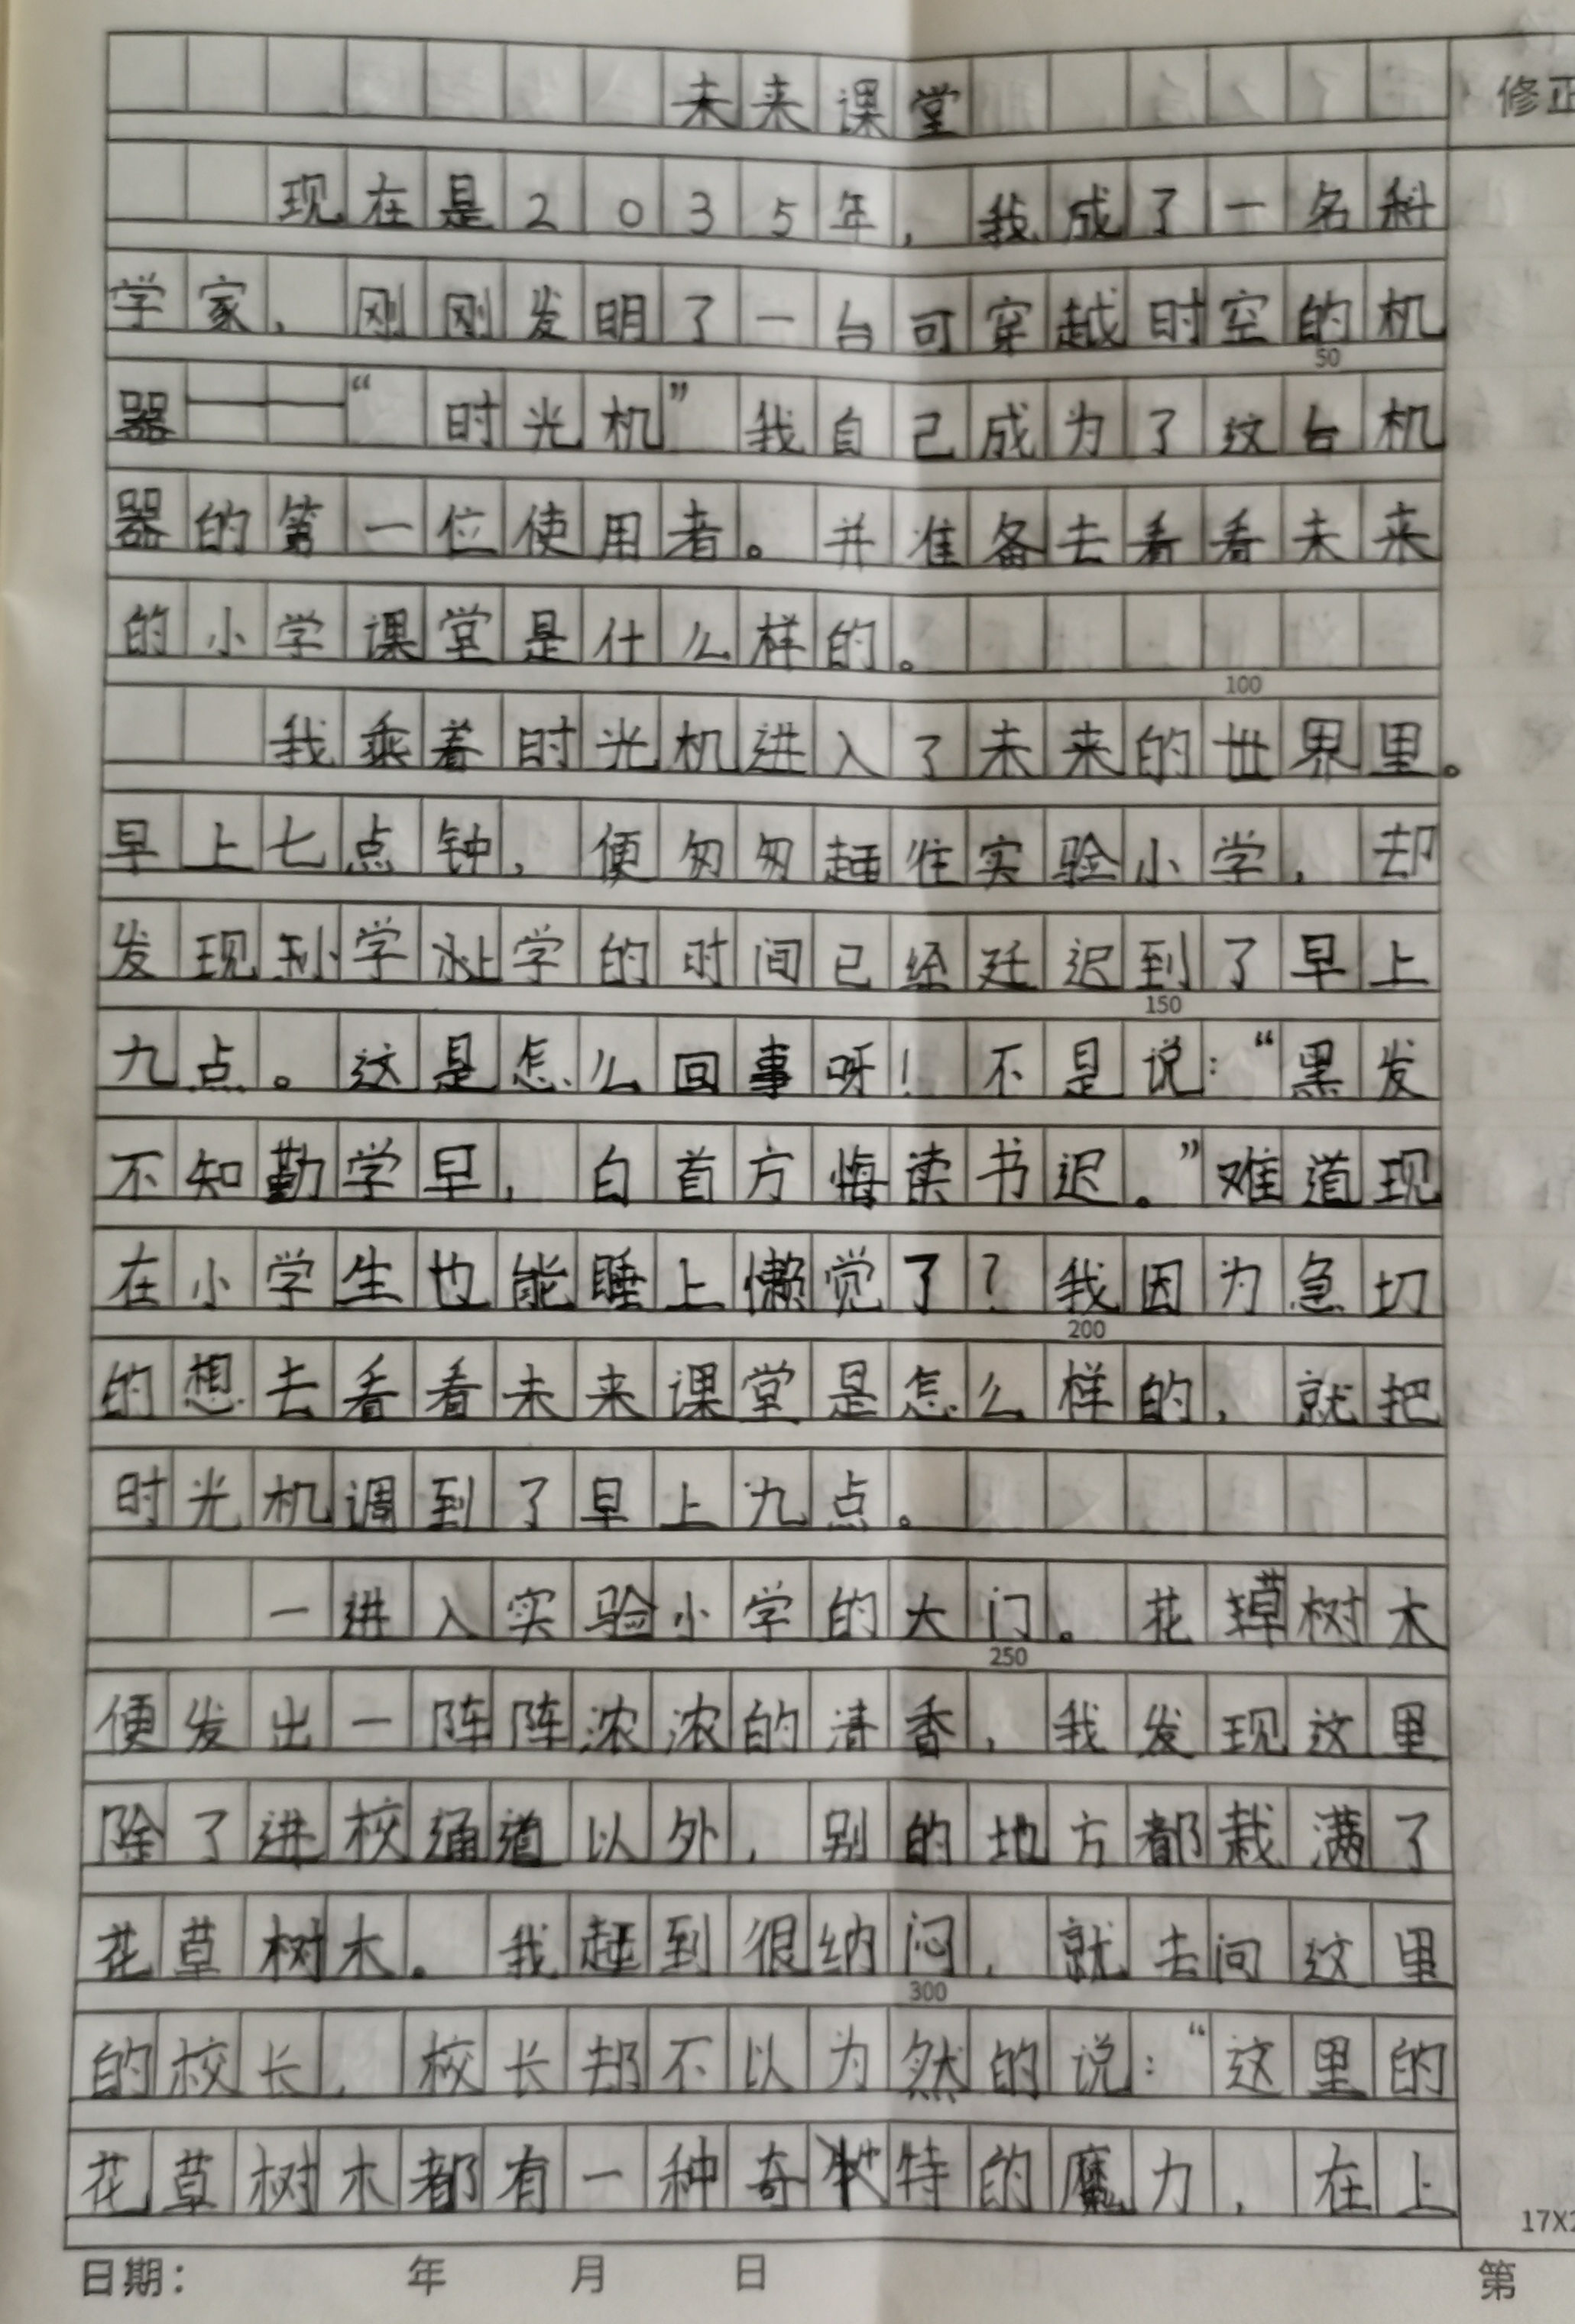 未来课堂
修正
现在是2035年，我成了一名科
学家，刚刚发明了一台可穿越时空的机
50
器——“时光机”我自己成为了这台机
器的第一位使用者。并准备去看看未来
的小学课堂是什么样的。
100
我乘着时光机进入了未来的世界里。
早上七点钟，便匆匆赶往实验小学，却
发现到学上学的时间已经延迟到了早上
150
九点。这是怎么回事呀！不是说：“黑发
不知勤学早，白首方悔读书迟。”难道现
在小学生也能睡上懒觉了？我因为急切
200
的想去看看未来课堂是怎么样的，就把
时光机调到了早上九点。
一进入实验小学的大门。花草树木
250
便发出一阵阵浓浓的清香，我发现这里
除了进校通道以外，别的地方都栽满了
花草树木。我到很纳闷，就去问这里
300
的校长，校长却不以为然的说：“这里的
花草树木都有一种奇特的魔力，在上
17X2
日期： 年 月 日
第